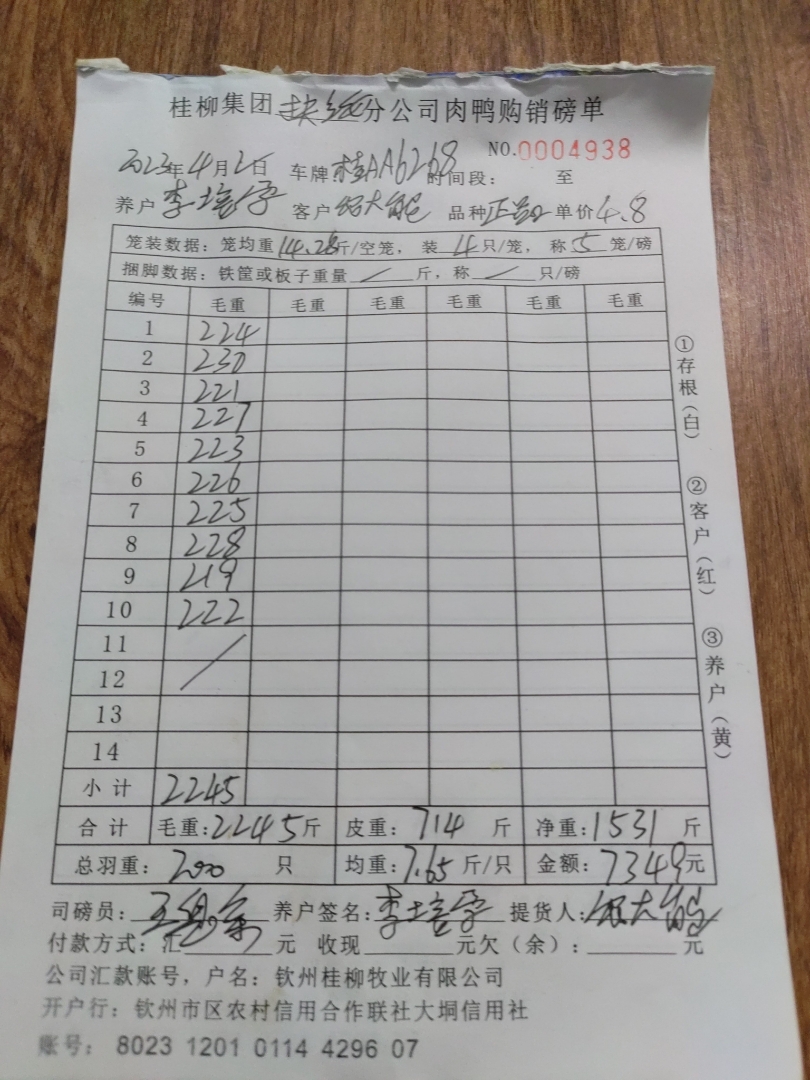 桂柳集团 分公司肉鸭购销磅单
NO.0004938
2023年4月2日 车牌桂AA6268 时间段： 至
养户李培宇 客户 品种 单价4.8
笼装数据：笼均重14.28斤/空笼，装4只/笼，称5笼/磅
捆脚数据：铁筐或板子重量／斤，称／只/磅
编号 毛重 毛重 毛重 毛重 毛重 毛重
1 224
2 230
3 221
4 227
5 223
6 226
7 225
8 228
9 219
10 222
11
12
13
14
小计 2245
合计 毛重：2245斤 皮重：714斤 净重：1531斤
总羽重：200只 均重：7.65斤/只 金额：7349元
司磅员： 养户签名：李培宇 提货人：
付款方式：汇 元 收现 元欠（余）： 元
公司汇款账号，户名：钦州桂柳牧业有限公司
开户行：钦州市区农村信用合作联社大垌信用社
账号：8023 1201 0114 4296 07
①存根（白）
②客户（红）
③养户（黄）